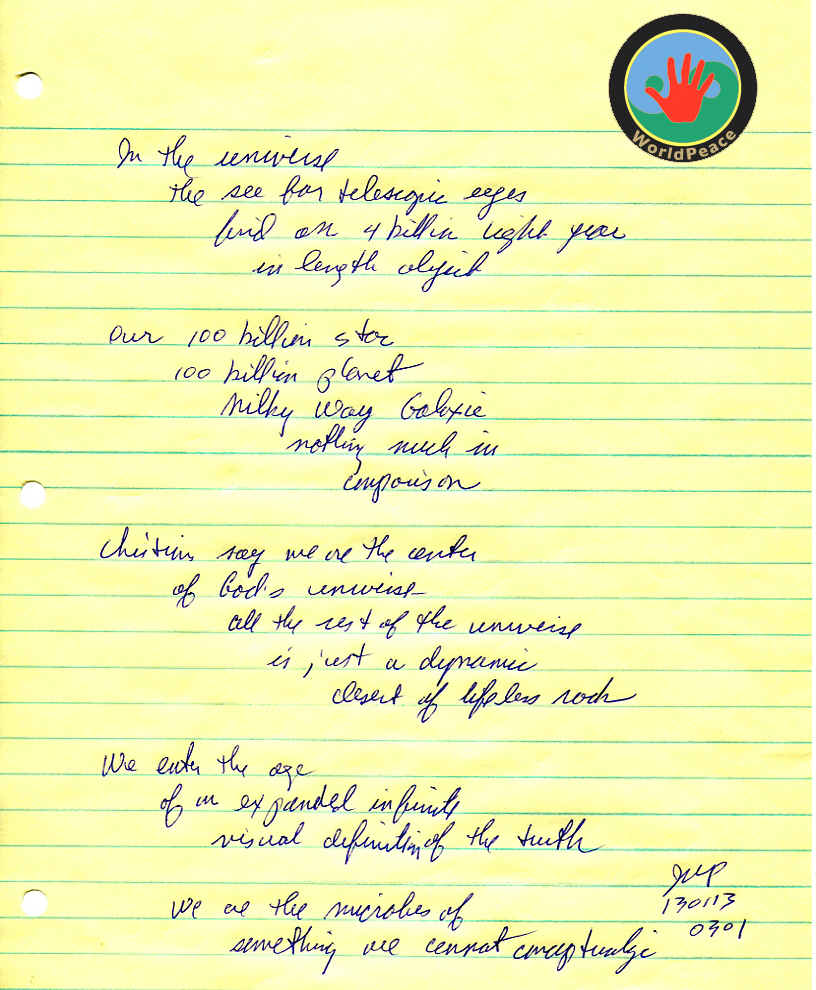 WorldPeace
In the universe
the see far telescopic eyes
find an 4 billion light year
in length object
Our 100 billion star
100 billion planet
Milky Way Galaxie
nothing much in
comparison
Christians say we are the center
of God's universe
all the rest of the universe
is just a dynamic
desert of lifeless rock
We enter the age
of an expanded infinite
visual definition of the truth
We are the microbes of
something we cannot conceptualize
JWP
130113
0301